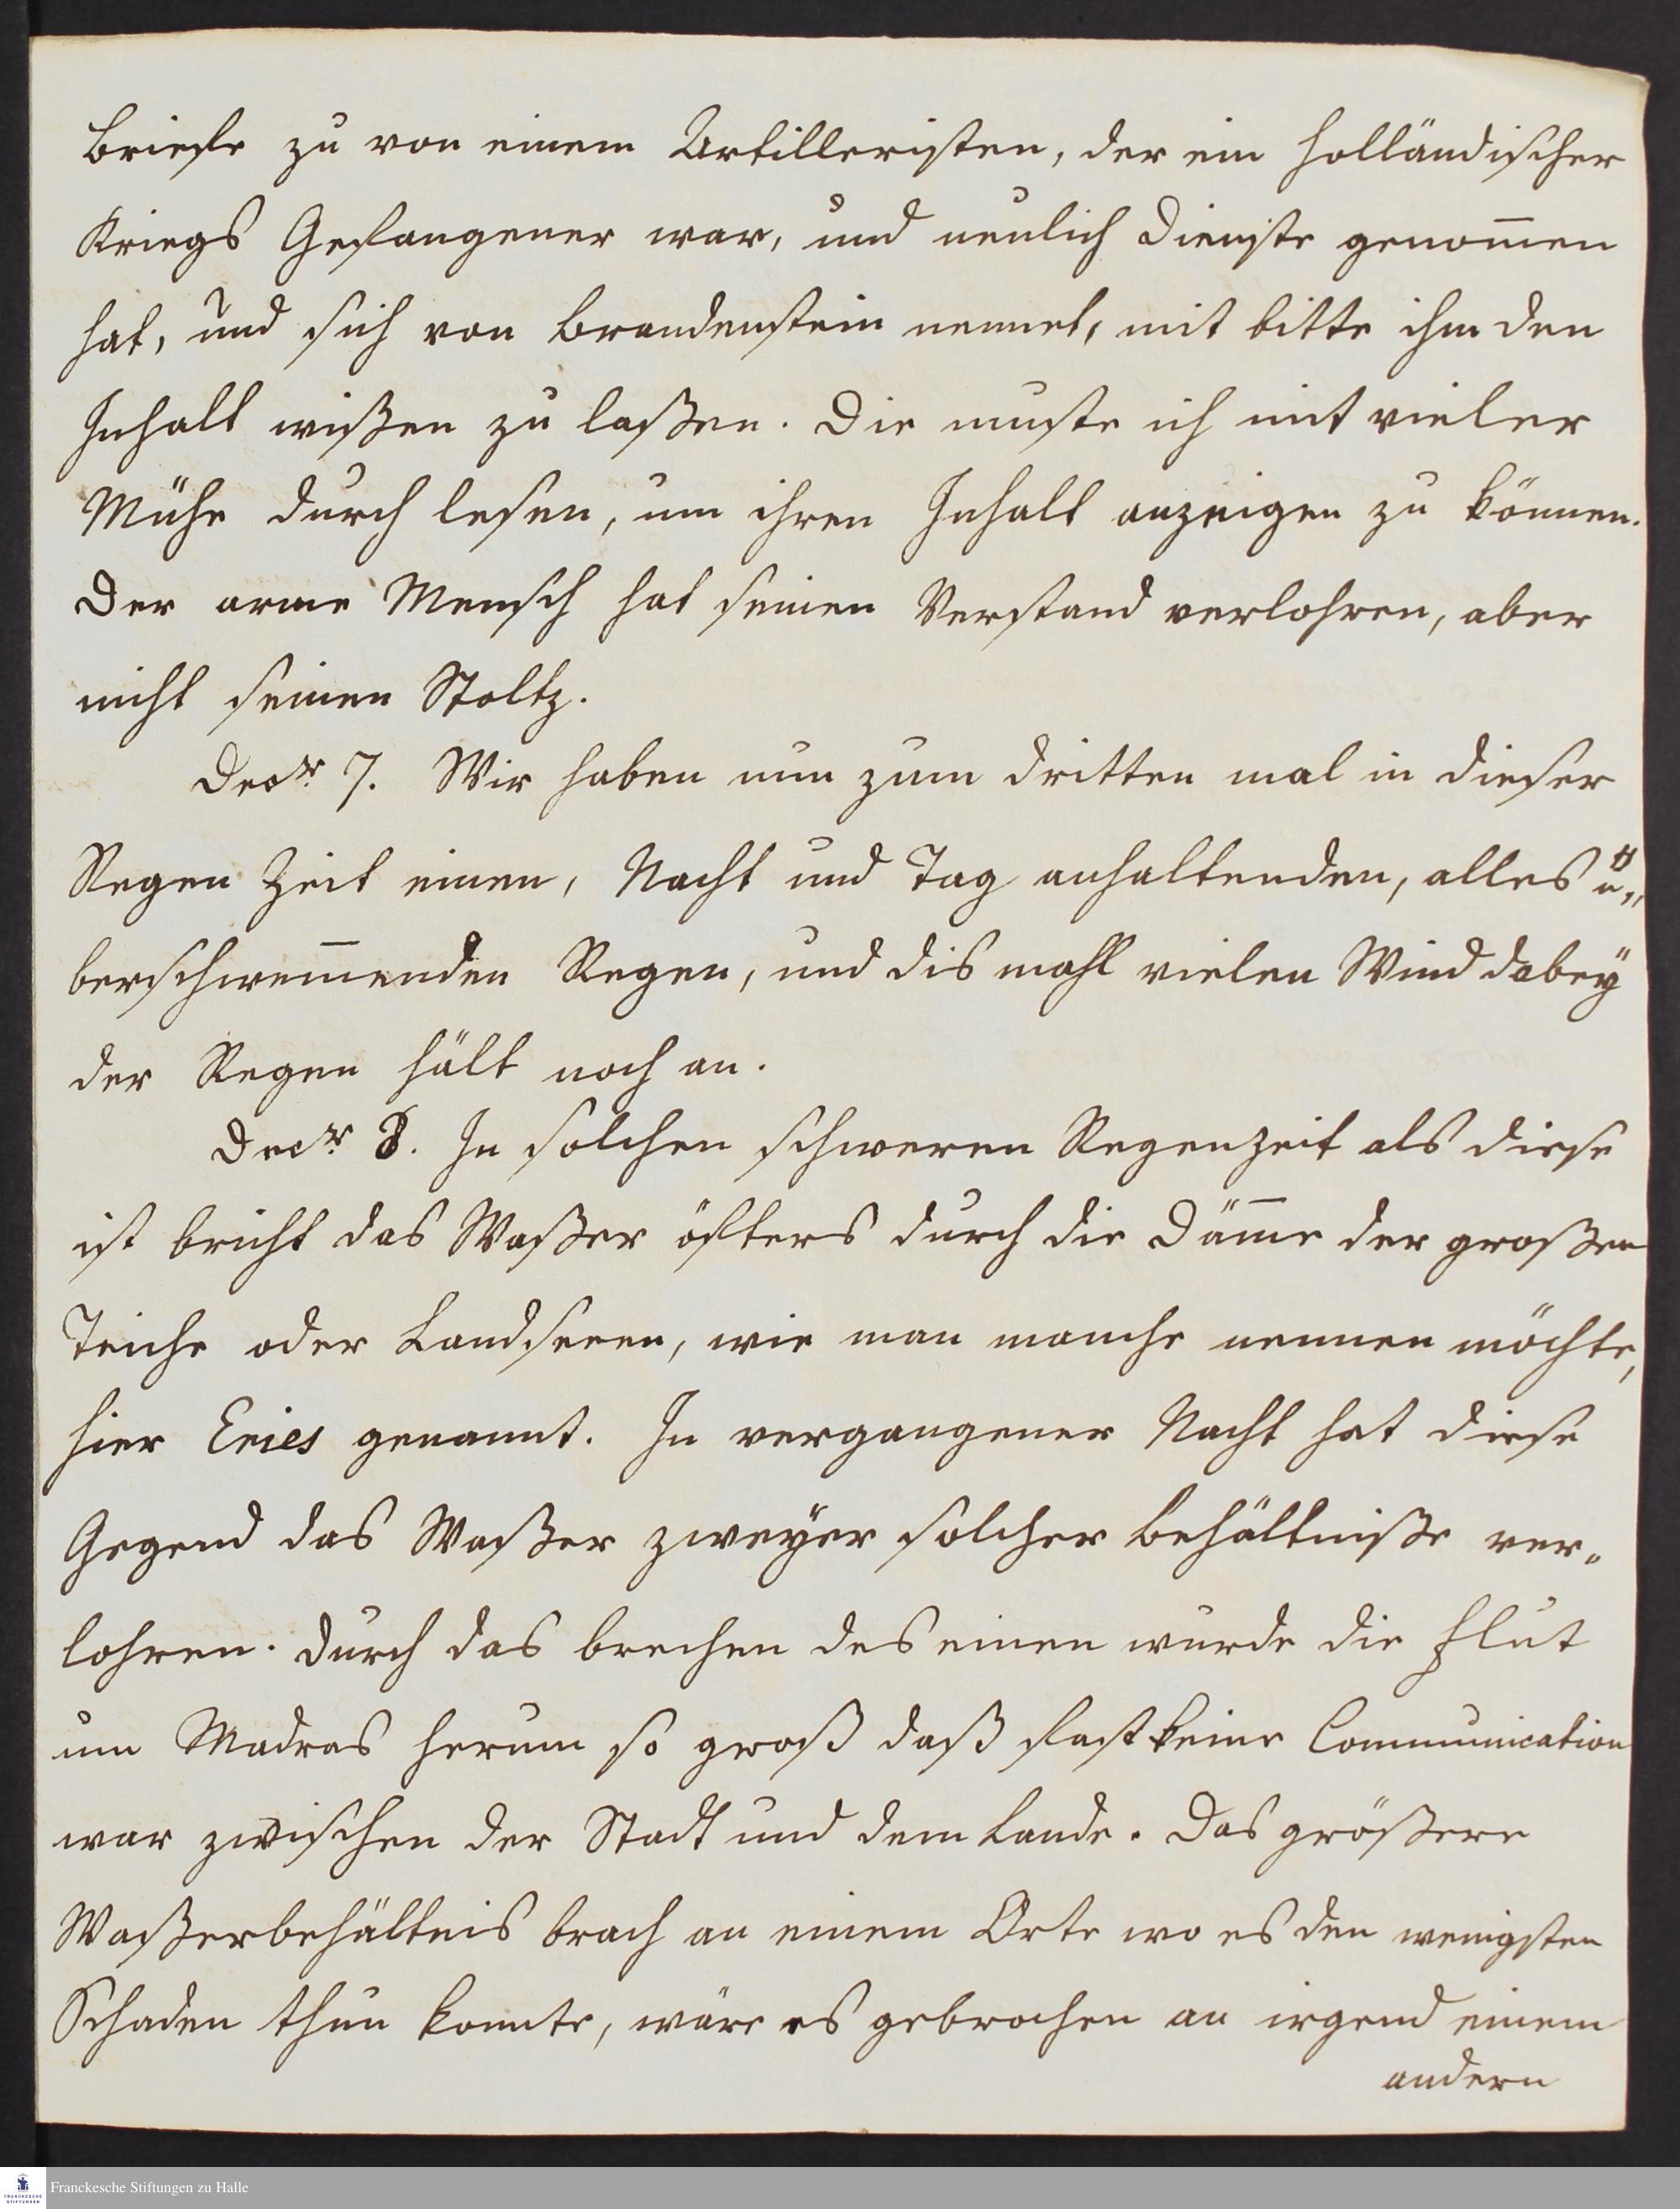 Briefe zu von einem Artilleristen, der ein Holländischer
Kriegs Gefangener war, und neulich Dienste genom̅en
hat, und sich von Brandenstein nennet, mit bitte ihm den
Inhalt wißen zu laßen. Die muste ich mit vieler
Mühe durch lesen, um ihren Inhalt anzeigen zu können.
Der arme Mensch hat seinen Verstand verlohren, aber
nicht seinen Stoltz.
Decr. 7. Wir haben nun zum dritten mal in dieser
Regen Zeit einen, Nacht und Tag anhaltenden, alles ü„
berschwem̅enden Regen, und dis mahl vielen Wind dabey
der Regen hält noch an.
Decr. 8. In solchen schweren Regenzeit als diese
ist bricht das Waßer öfters durch die Däm̅e der großen
Teiche oder Landseen, wie man manche nennen möchte,
hier Eries genannt. In vergangener Nacht hat diese
Gegend das Waßer zweyer solcher Behältniße ver„
lohren. Durch das brechen des einen wurde die Flut
um Madras herum so groß daß fast keine Communication
war zwischen der Stadt und dem Lande. Das größere
Waßerbehältnis brach an einem Orte wo es den wenigsten
Schaden thun konnte, wäre es gebrochen an irgend einem
andern
FRANCKESCHE STIFTUNGEN
Franckesche Stiftungen zu Halle